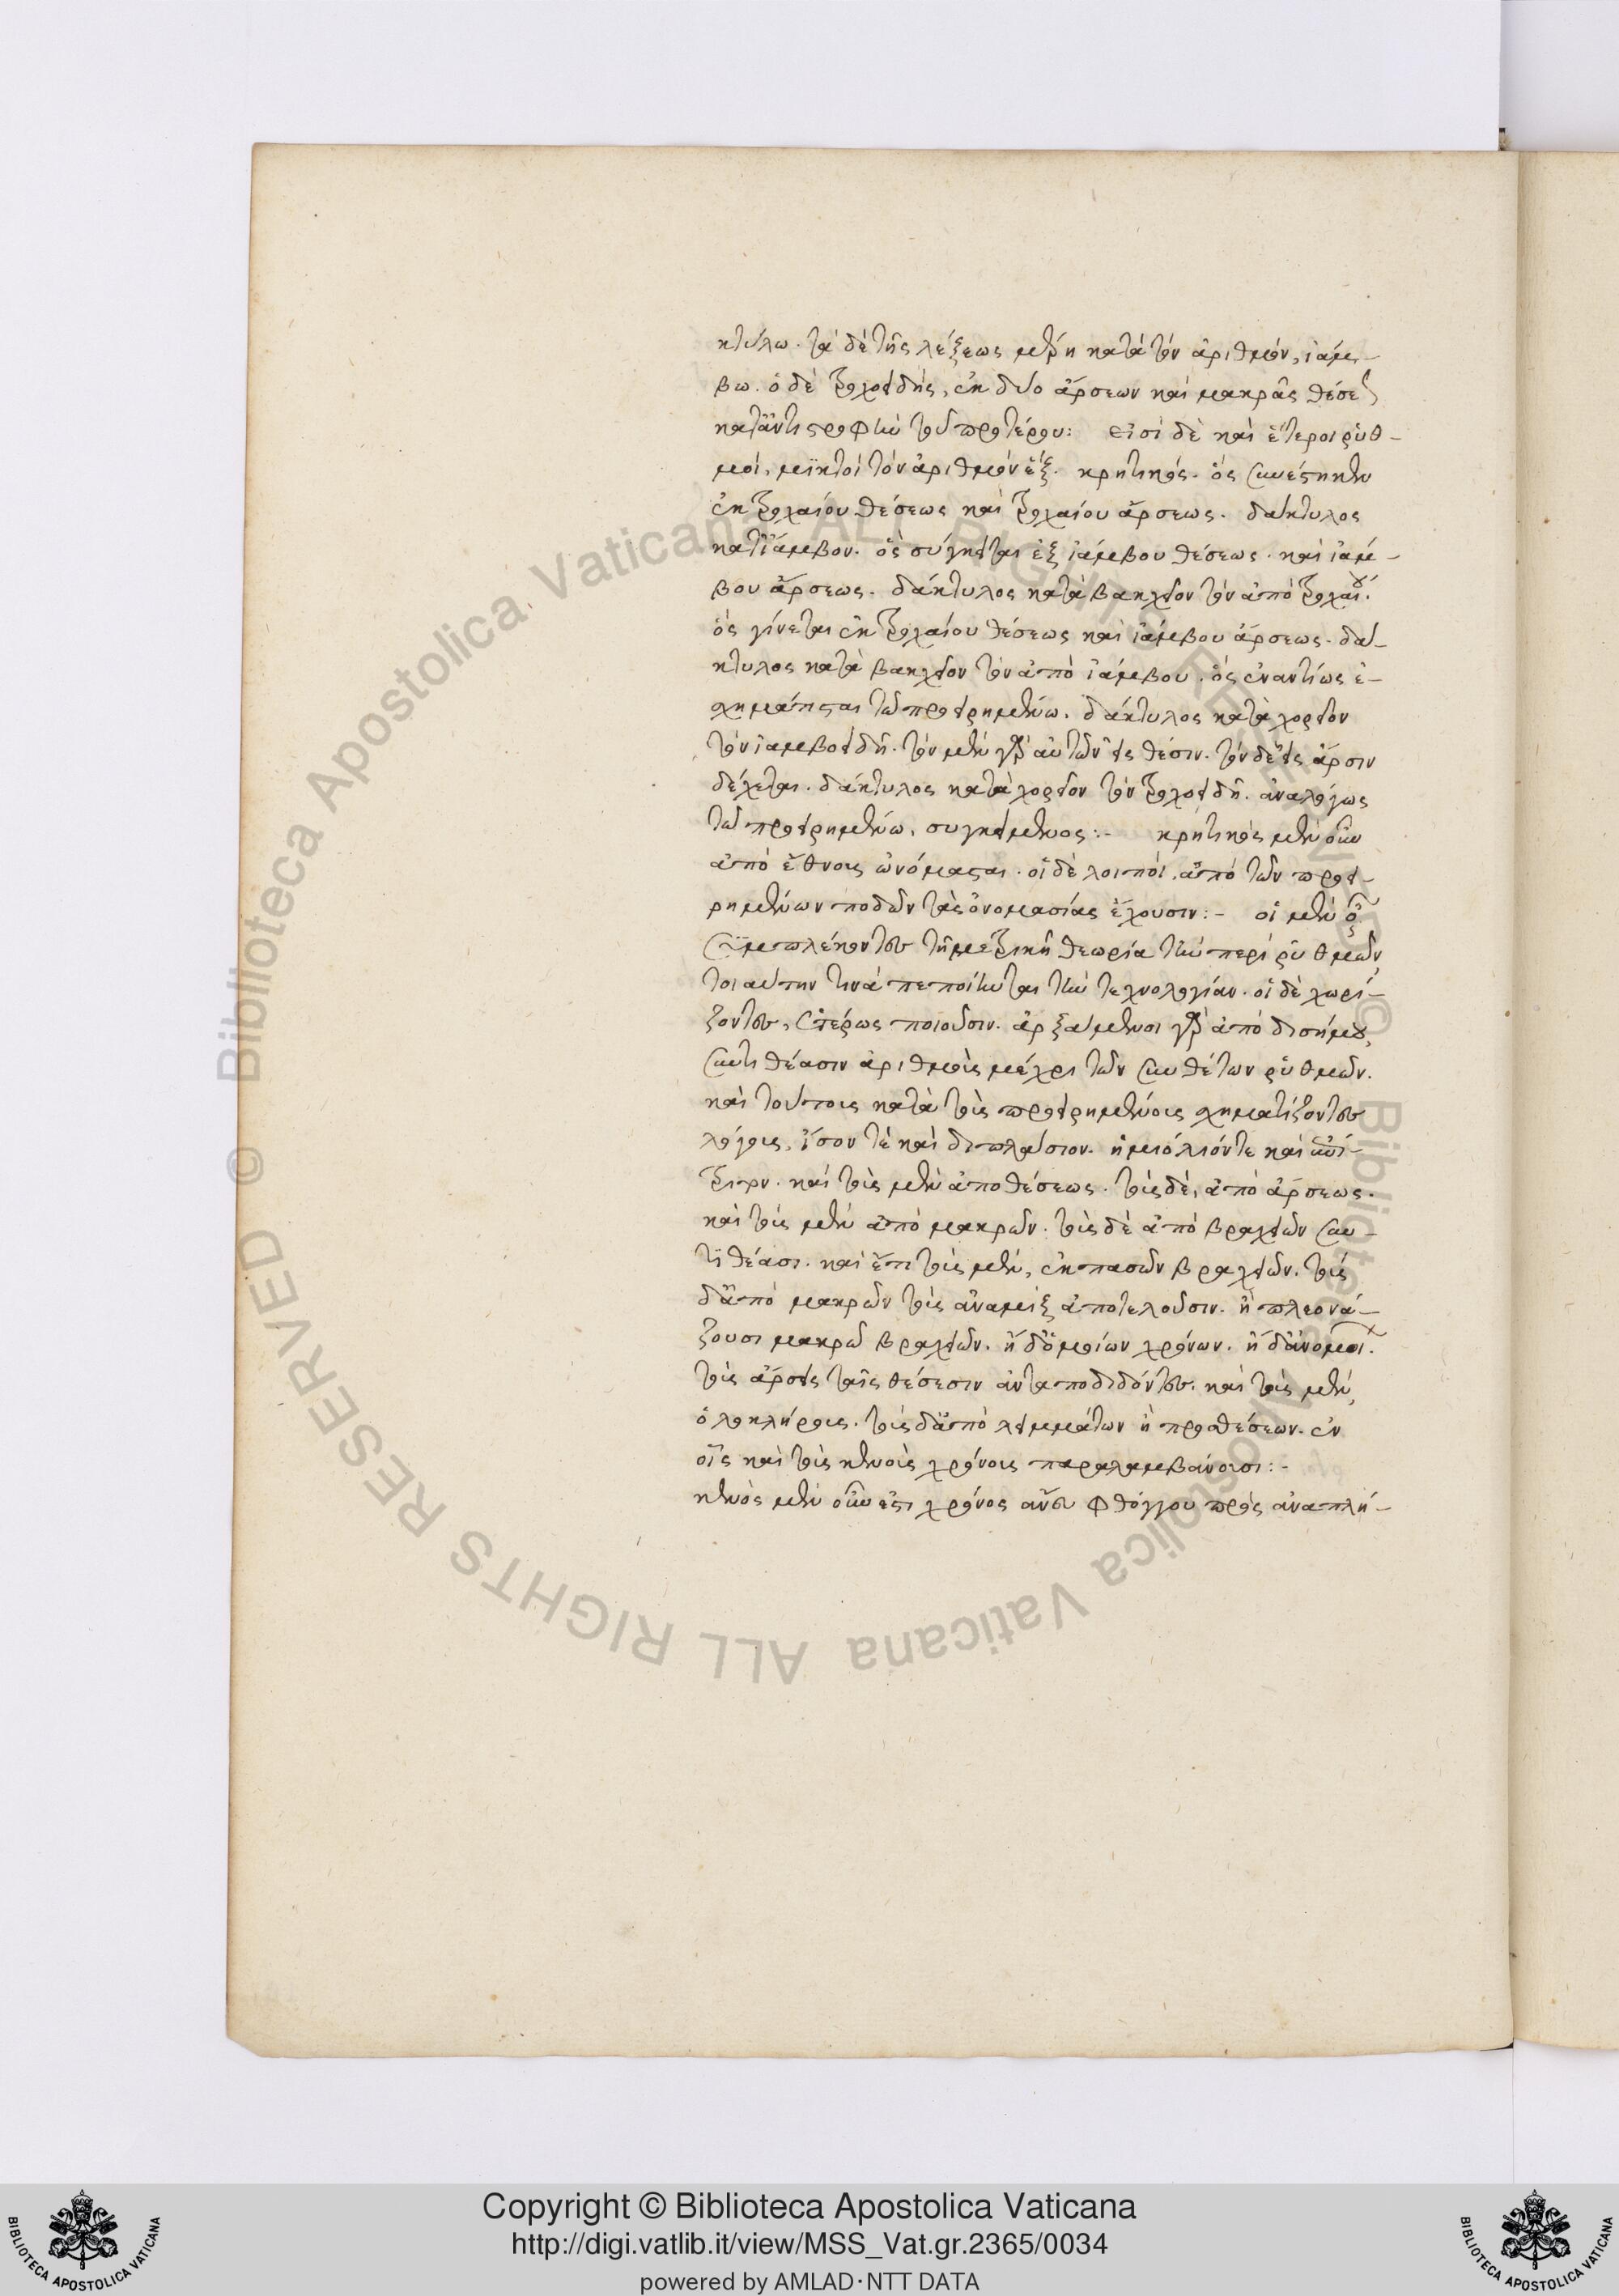 κτύλω. τὰ δὲ τῆς λέξεως μέρη κατὰ τὸν ἀριθμὸν, ἰάμ-
βω. ὁ δὲ τροχοειδὴς, ἐκ δύο ἄρσεων καὶ μακρᾶς θέσεως
κατ' ἀντιστροφὴν τοῦ προτέρου: εἰσὶ δὲ καὶ ἕτεροι ῥυθ-
μοὶ, μικτοὶ τὸν ἀριθμὸν ἕξ. κρητικός. ὃς συνέστηκεν
ἐκ τροχαίου θέσεως καὶ τροχαίου ἄρσεως. δάκτυλος
κατ' ἴαμβον. ὃς σύγκειται ἐξ ἰάμβου θέσεως. καὶ ἰάμ-
βου ἄρσεως. δάκτυλος κατὰ βακχεῖον τὸν ἀπὸ τροχαίου.
ὃς γίνεται ἐκ τροχαίου θέσεως καὶ ἰάμβου ἄρσεως. δά-
κτυλος κατὰ βακχεῖον τὸν ἀπὸ ἰάμβου. ὃς ἐναντίως ἐ-
σχημάτισται τῷ προειρημένω. δάκτυλος κατὰ χορεῖον
τὸν ἰαμβοειδῆ. τὸν μὲν γὰρ αὐτῶν εἰς θέσιν. τὸν δὲ εἰς ἄρσιν
δέχεται. δάκτυλος κατὰ χορεῖον τὸν τροχοειδῆ. ἀναλόγως
τῷ προειρημένω, συγκείμενος:- κρητικὸς μὲν οὖν
ἀπὸ ἔθνους ὠνόμασται. οἱ δὲ λοιποὶ, ἀπὸ τῶν προει-
ρημένων ποδῶν τὰς ὀνομασίας ἔχουσιν:- οἱ μὲν οὖν
συμπλέκοντες τῇ μετρικῇ θεωρία τὴν περὶ ῥυθμῶν,
τοιαύτην τινὰ πεποίηνται τὴν τεχνολογίαν. οἱ δὲ χωρί-
ζοντες, ἑτέρως ποιοῦσιν. ἀρξάμενοι γὰρ ἀπὸ δισήμου,
συντιθέασιν ἀριθμοὺς μέχρι τῶν συνθέτων ῥυθμῶν.
καὶ τούτους κατὰ τοὺς προειρημένους σχηματίζοντες
λόγους, ἴσον τὲ καὶ διπλάσιον. ἡμιόλιόν τε καὶ ἐπί-
τριτον. καὶ τοὺς μὲν ἀπὸ θέσεως. τοὺς δὲ, ἀπὸ ἄρσεως.
καὶ τοὺς μὲν ἀπὸ μακρῶν. τοὺς δὲ ἀπὸ βραχειῶν συν-
τιθέασι. καὶ ἔτι τοὺς μὲν, ἐκ πασῶν βραχειῶν. τοὺς
δ' ἀπὸ μακρῶν τοὺς ἀναμὶξ ἀποτελοῦσιν. ἢ πλεονά-
ζουσι μακρῶν βραχειῶν. ἢ δ' ὁμοίων χρόνων. ἢ δ' ἀνομοι.
τοὺς ἄρσεις ταῖς θέσεσιν ἀνταποδιδόντες. καὶ τοὺς μὲν,
ὁλοκλήρους. τοὺς δ' ἀπὸ λειμμάτων ἢ προσθέσεων. ἐν
οἷς καὶ τοὺς κενοὺς χρόνους παραλαμβάνουσι:-
κενὸς μὲν οὖν ἐστι χρόνος ἄνευ φθόγγου πρὸς ἀναπλή-